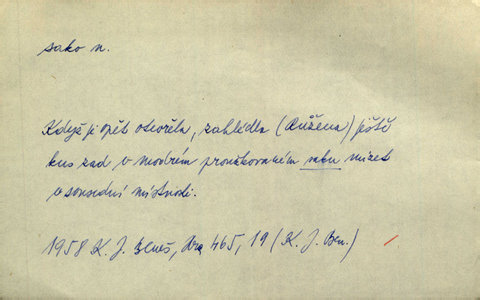 sako n.
Když ji opět otevřela, zahlédla (Růžena) ještě
kus zad v modrém proužkovaném saku mizet
v sousední místnosti.
1958 K. J. Beneš, 465, 19 (K. J. Ben.)